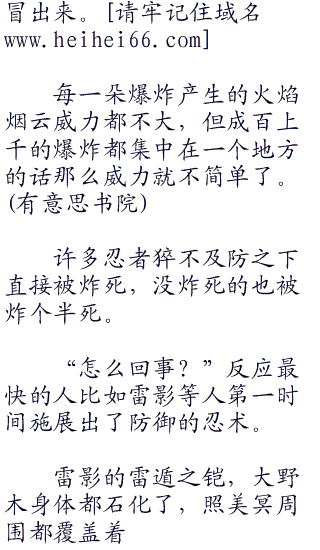 冒出来。[请牢记住域名
www.heihei66.com]
每一朵爆炸产生的火焰
烟云威力都不大，但成百上
千的爆炸都集中在一个地方
的话那么威力就不简单了。
(有意思书院)
许多忍者猝不及防之下
直接被炸死，没炸死的也被
炸个半死。
“怎么回事？”反应最
快的人比如雷影等人第一时
间施展出了防御的忍术。
雷影的雷遁之铠，大野
木身体都石化了，照美冥周
围都覆盖着